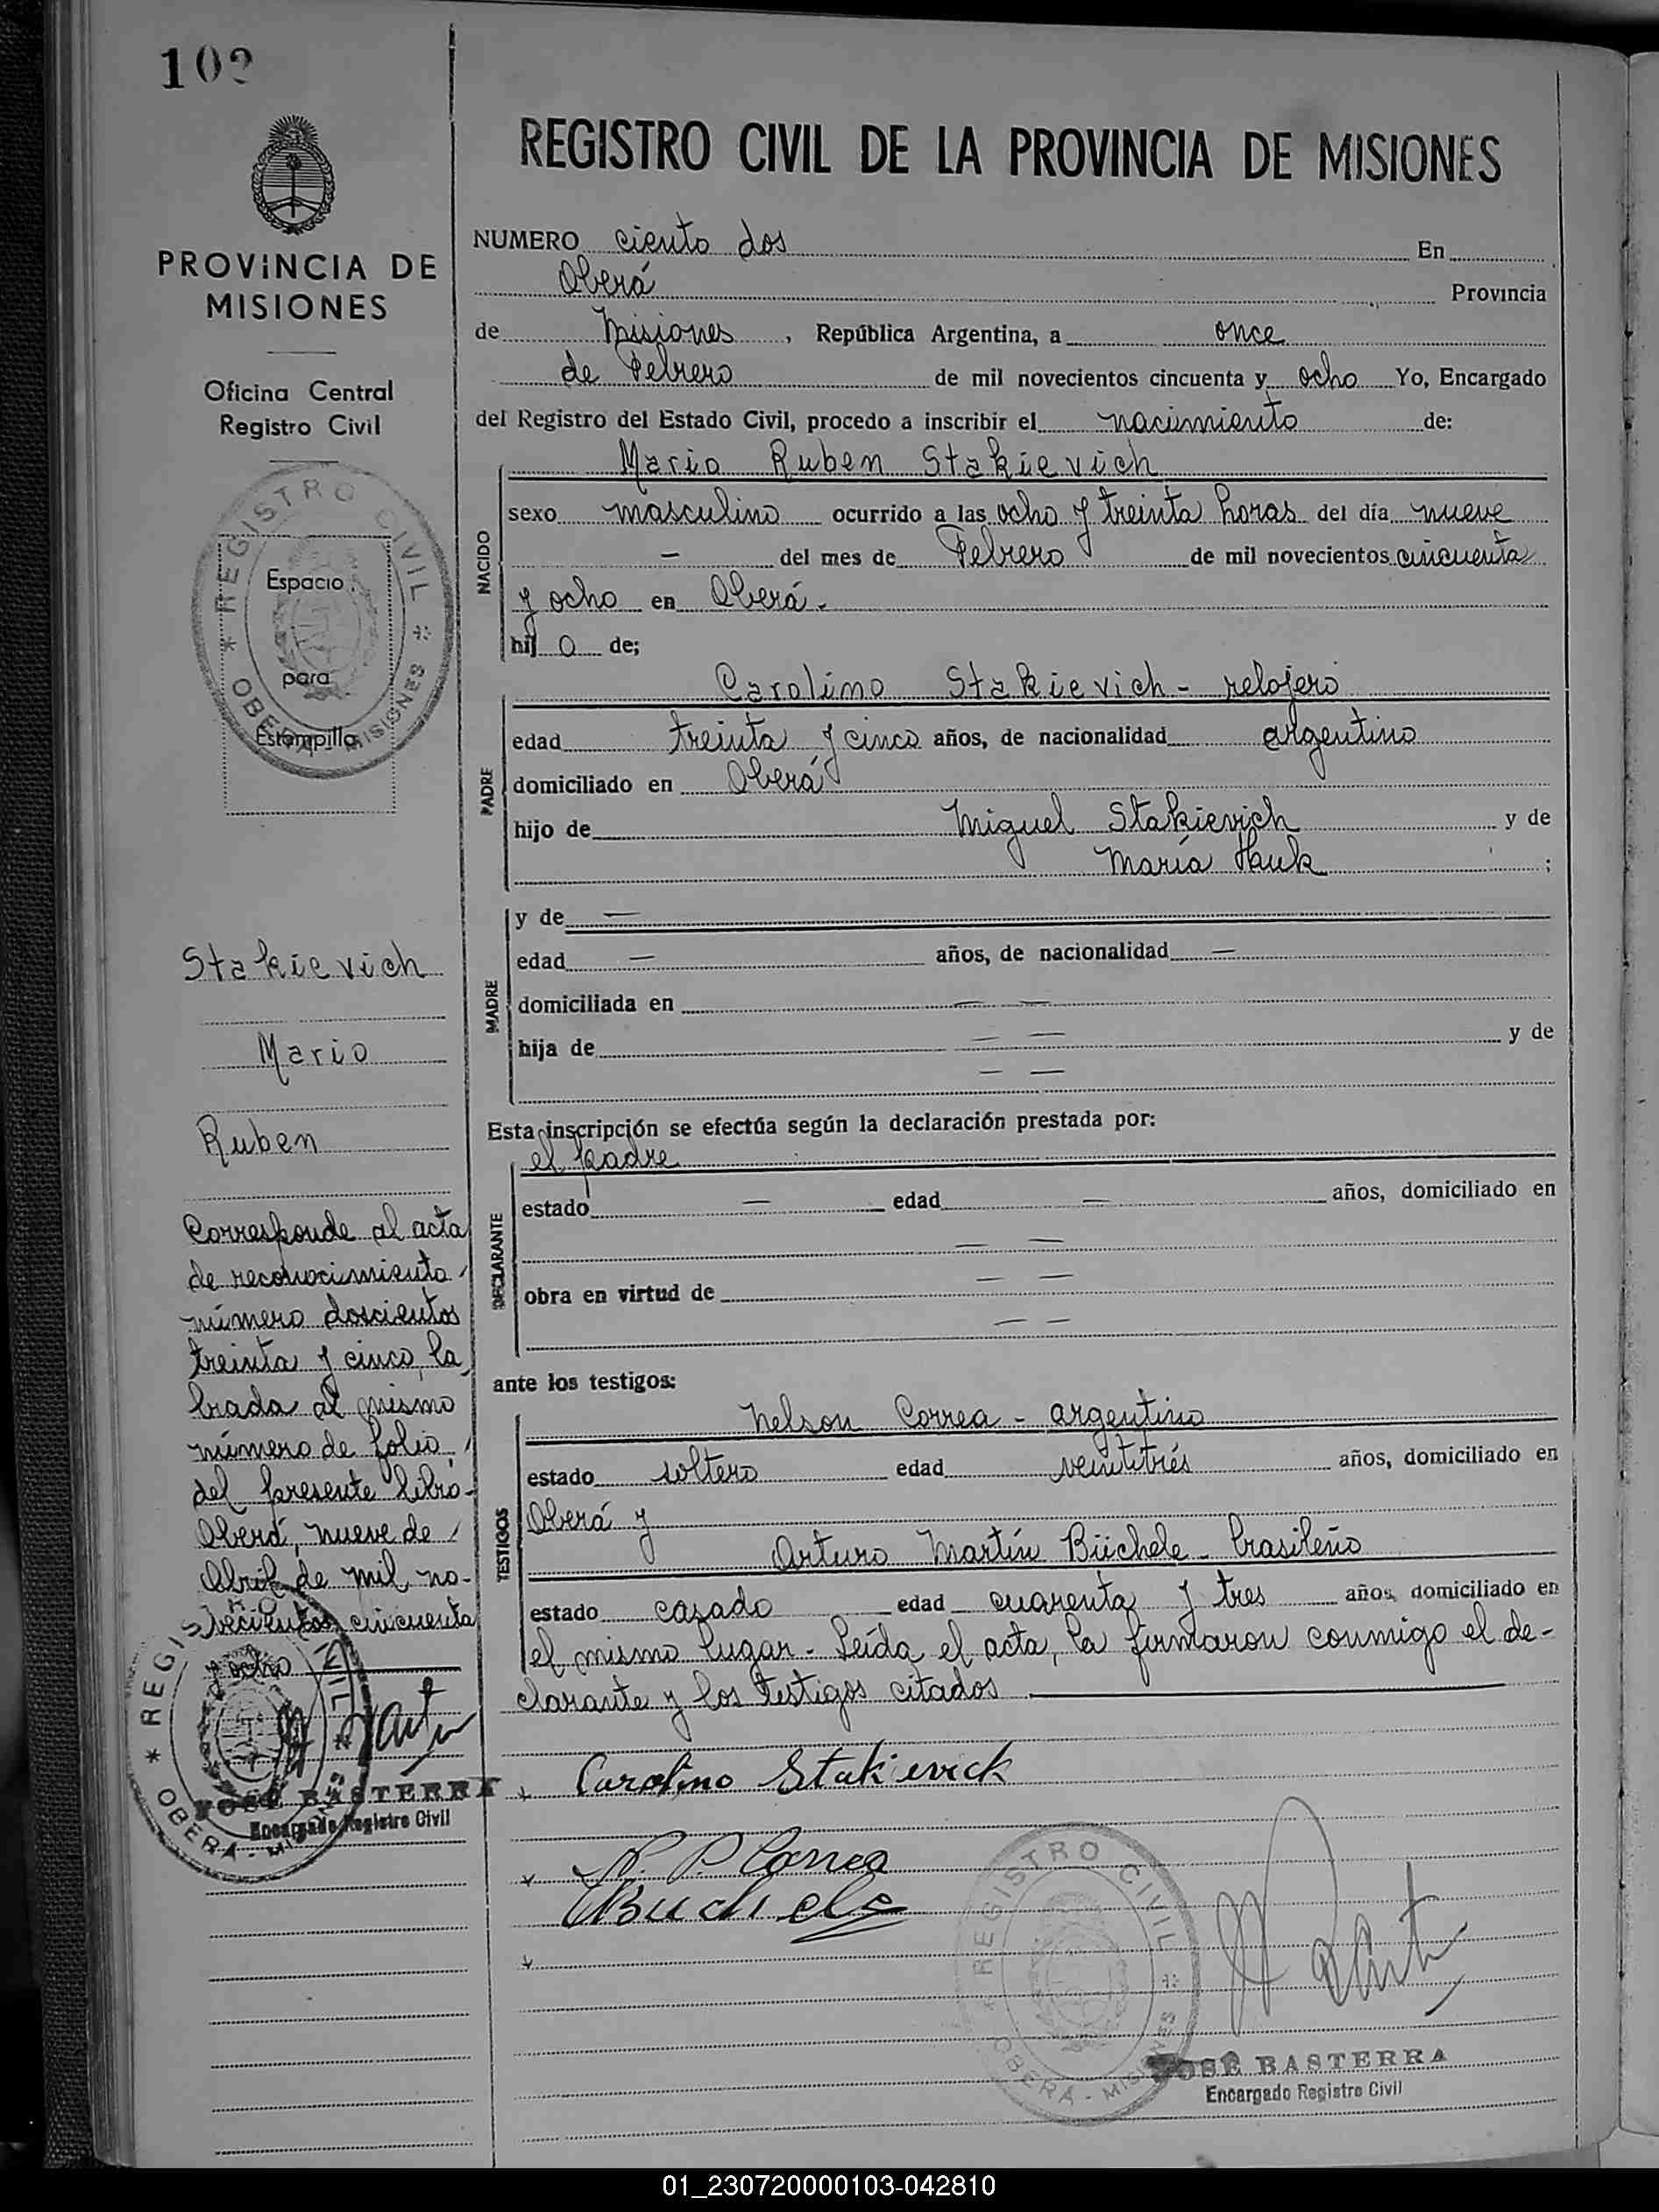 102
PROVINCIA DE
MISIONES
Oficina Central
Registro Civil
REGISTRO CIVIL
OBERA MISIONES
Espacio
para
Estampilla
Stakievich
Mario
Ruben
Corresponde al acta
de reconocimiento
número doscientos
treinta y cinco, la
brada al mismo
número de folio
del presente libro-
Oberá, nueve de
Abril de mil no-
vecientos cincuenta
y ocho
JOSÉ BASTERRA
Encargado Registro Civil
REGISTRO CIVIL DE LA PROVINCIA DE MISIONES
NUMERO ciento dos En
Oberá Provincia
de Misiones, República Argentina, a once
de Febrero de mil novecientos cincuenta y ocho Yo, Encargado
del Registro del Estado Civil, procedo a inscribir el nacimiento de:
Mario Ruben Stakievich
NACIDO
sexo masculino ocurrido a las ocho y treinta horas del día nueve
— del mes de Febrero de mil novecientos cincuenta
y ocho en Oberá.
hijo de;
Carolino Stakievich - relojero
PADRE
edad treinta y cinco años, de nacionalidad argentino
domiciliado en Oberá
hijo de Miguel Stakievich y de
María Hauk ;
MADRE
y de —
edad — años, de nacionalidad —
domiciliada en — —
hija de — — y de
— —
Esta inscripción se efectúa según la declaración prestada por:
el padre
DECLARANTE
estado — edad — años, domiciliado en
— —
obra en virtud de — —
— —
ante los testigos:
Nelson Correa - argentino
TESTIGOS
estado soltero edad veintitrés años, domiciliado en
Oberá y
Arturo Martín Büchele - brasileño
estado casado edad cuarenta y tres años, domiciliado en
el mismo lugar - Leída el acta, la firmaron conmigo el de-
clarante y los testigos citados
Carolino Stakievick
N. P. Correa
Buchele
REGISTRO CIVIL
OBERA - MISIONES
JOSÉ BASTERRA
Encargado Registro Civil
01_230720000103-042810